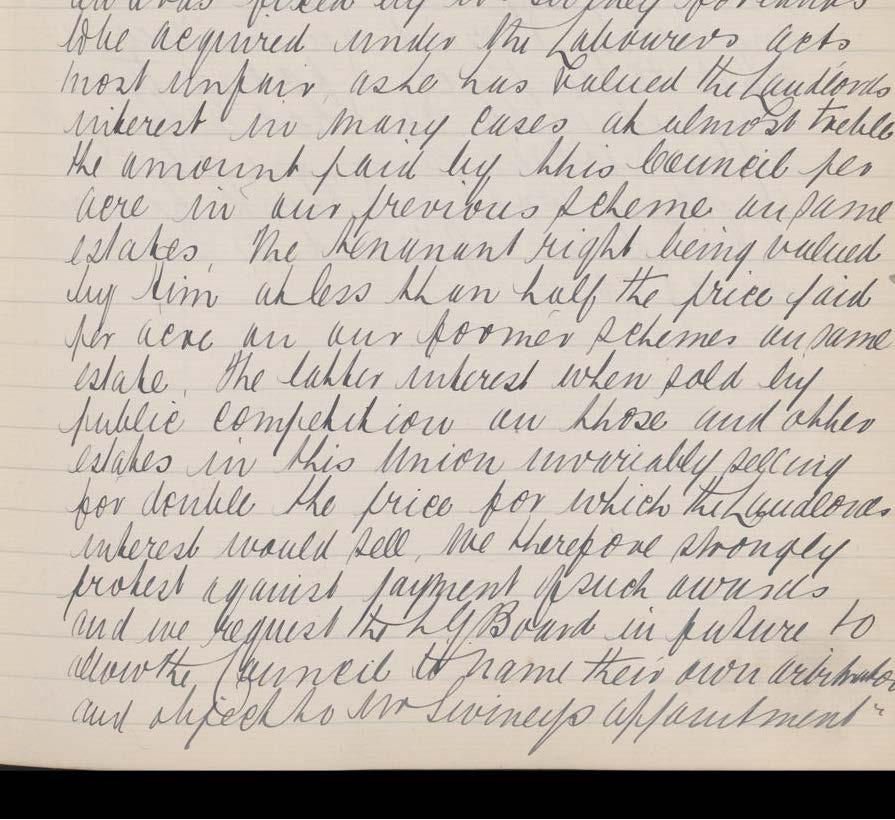 fixed by Mr for lands
to be acquired under the Labourers acts
most unfair, as he has valued the Landlords
interest in many cases at almost treble
the amount paid by this Council per
acre in our previous scheme on same
estates, The tenanant right being valued
by him at less than half the price paid
per acre on our foormer schemes on same
estate. The latter interest when sold by
public competition on those and other
estates in this Union invariably selling
for double the price for which the Landlords
interest would sell, We therefore strongly
protest against payment of such awards
and we request the L G Board in future to
allow the Council to name their own arbitrator
and object to Mr appointment"